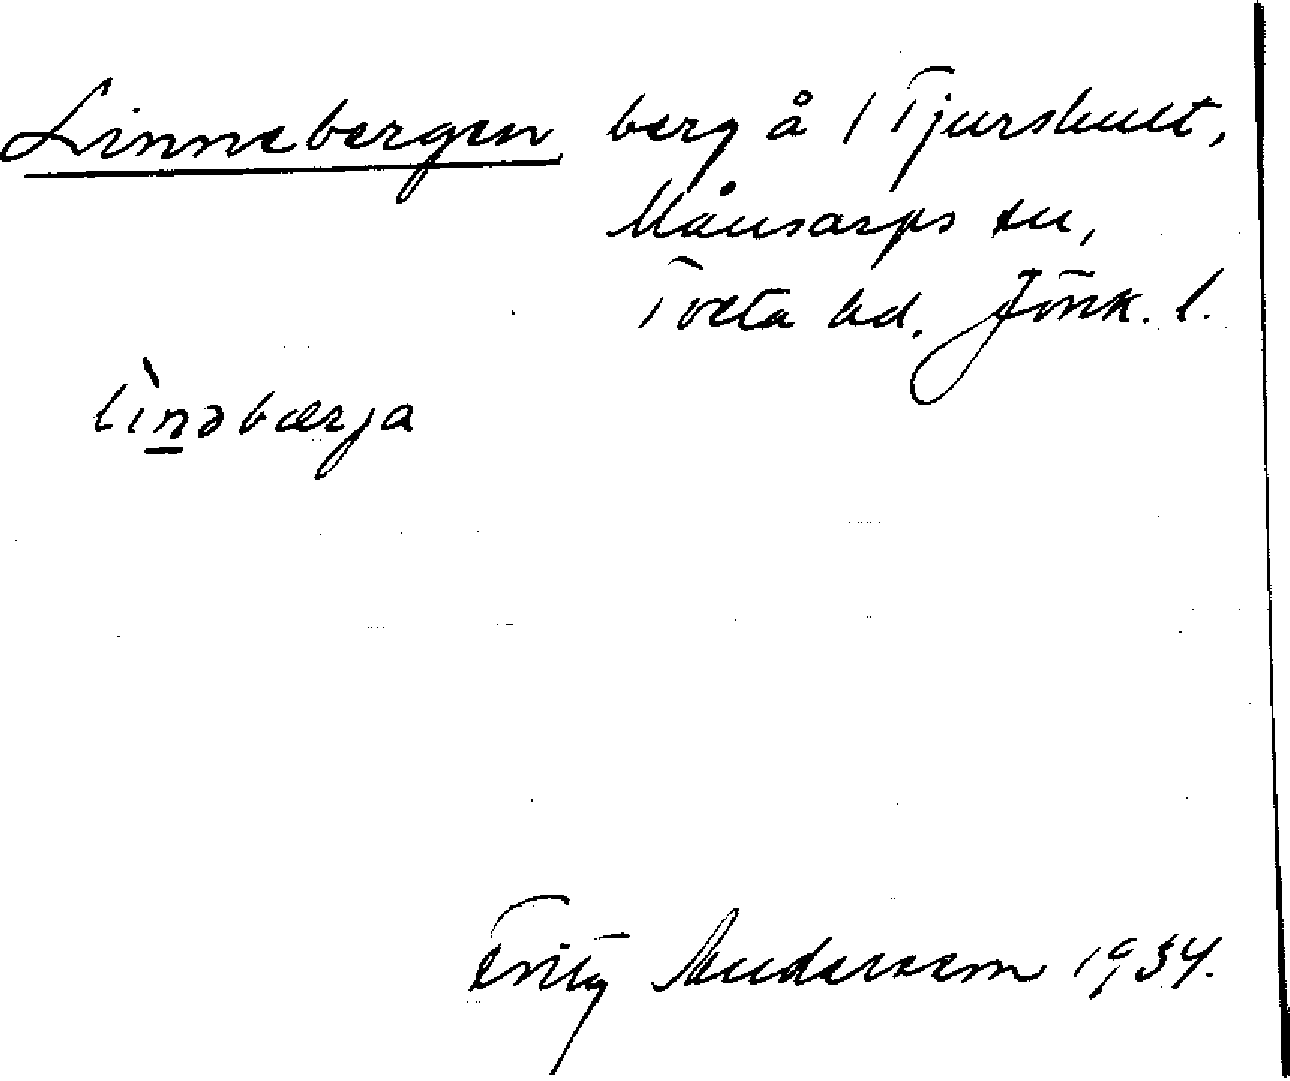 Linnebergen berg å 1 Tjurshult,
Månsarps sn,
Tveta hd. Jönk. l.
lìnəbærja
Fritz Andersson 1934.